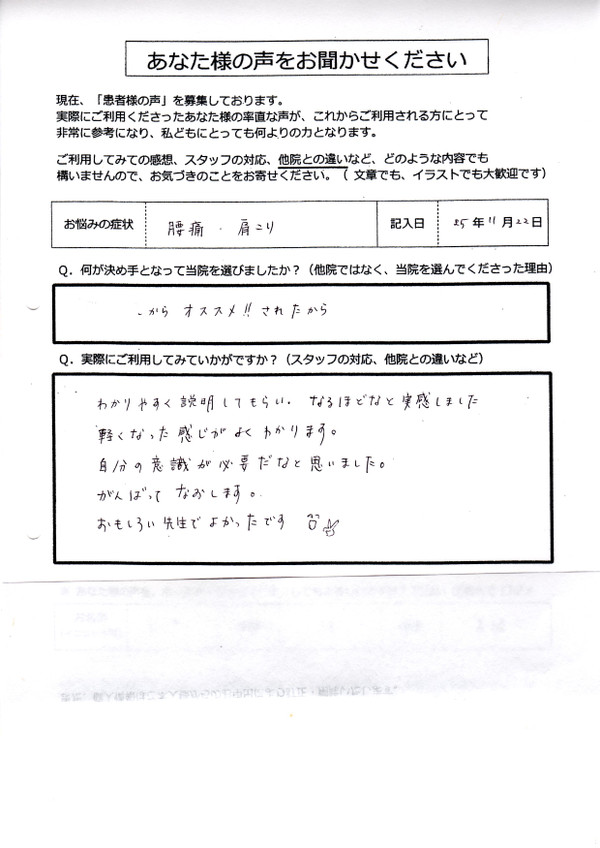 あなた様の声をお聞かせください
現在、「患者様の声」を募集しております。
実際にご利用くださったあなた様の率直な声が、これからご利用される方にとって
非常に参考になり、私どもにとっても何よりの力となります。
ご利用してみての感想、スタッフの対応、他院との違いなど、どのような内容でも
構いませんので、お気づきのことをお寄せください。（ 文章でも、イラストでも大歓迎です）
お悩みの症状 腰痛 . 肩こり 記入日 25年11月22日
Q．何が決め手となって当院を選びましたか？（他院ではなく、当院を選んでくださった理由）
からオススメ!!されたから
Q．実際にご利用してみていかがですか？（スタッフの対応、他院との違いなど）
わかりやすく説明してもらい、なるほどなと実感しました
軽くなった感じがよくわかります。
自分の意識が必要だなと思いました。
がんばってなおします。
おもしろい先生でよかったです